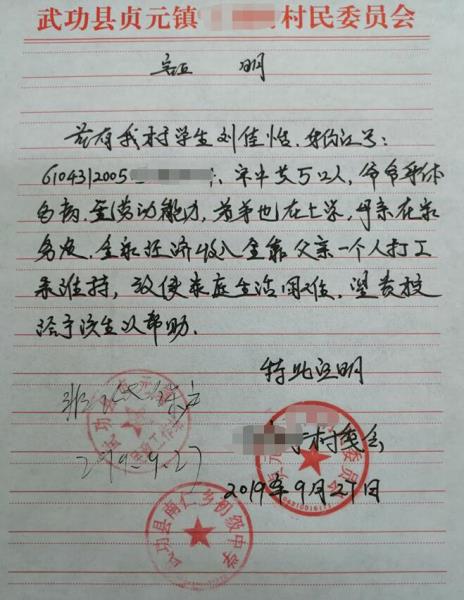 武功县贞元镇 村民委员会
证 明
兹有我村学生刘佳恬,身份证号:
6104312005 ,家中共5口人,爷爷身体
多病,无劳动能力,弟弟也在上学,母亲在家
务农,全家经济收入全靠父亲一个人打工
来维持,致使家庭生活困难,望贵校
给予该生以帮助.
特此证明
村委会
2019年9月27日
2019.9.27
武功县南仁乡初级中学